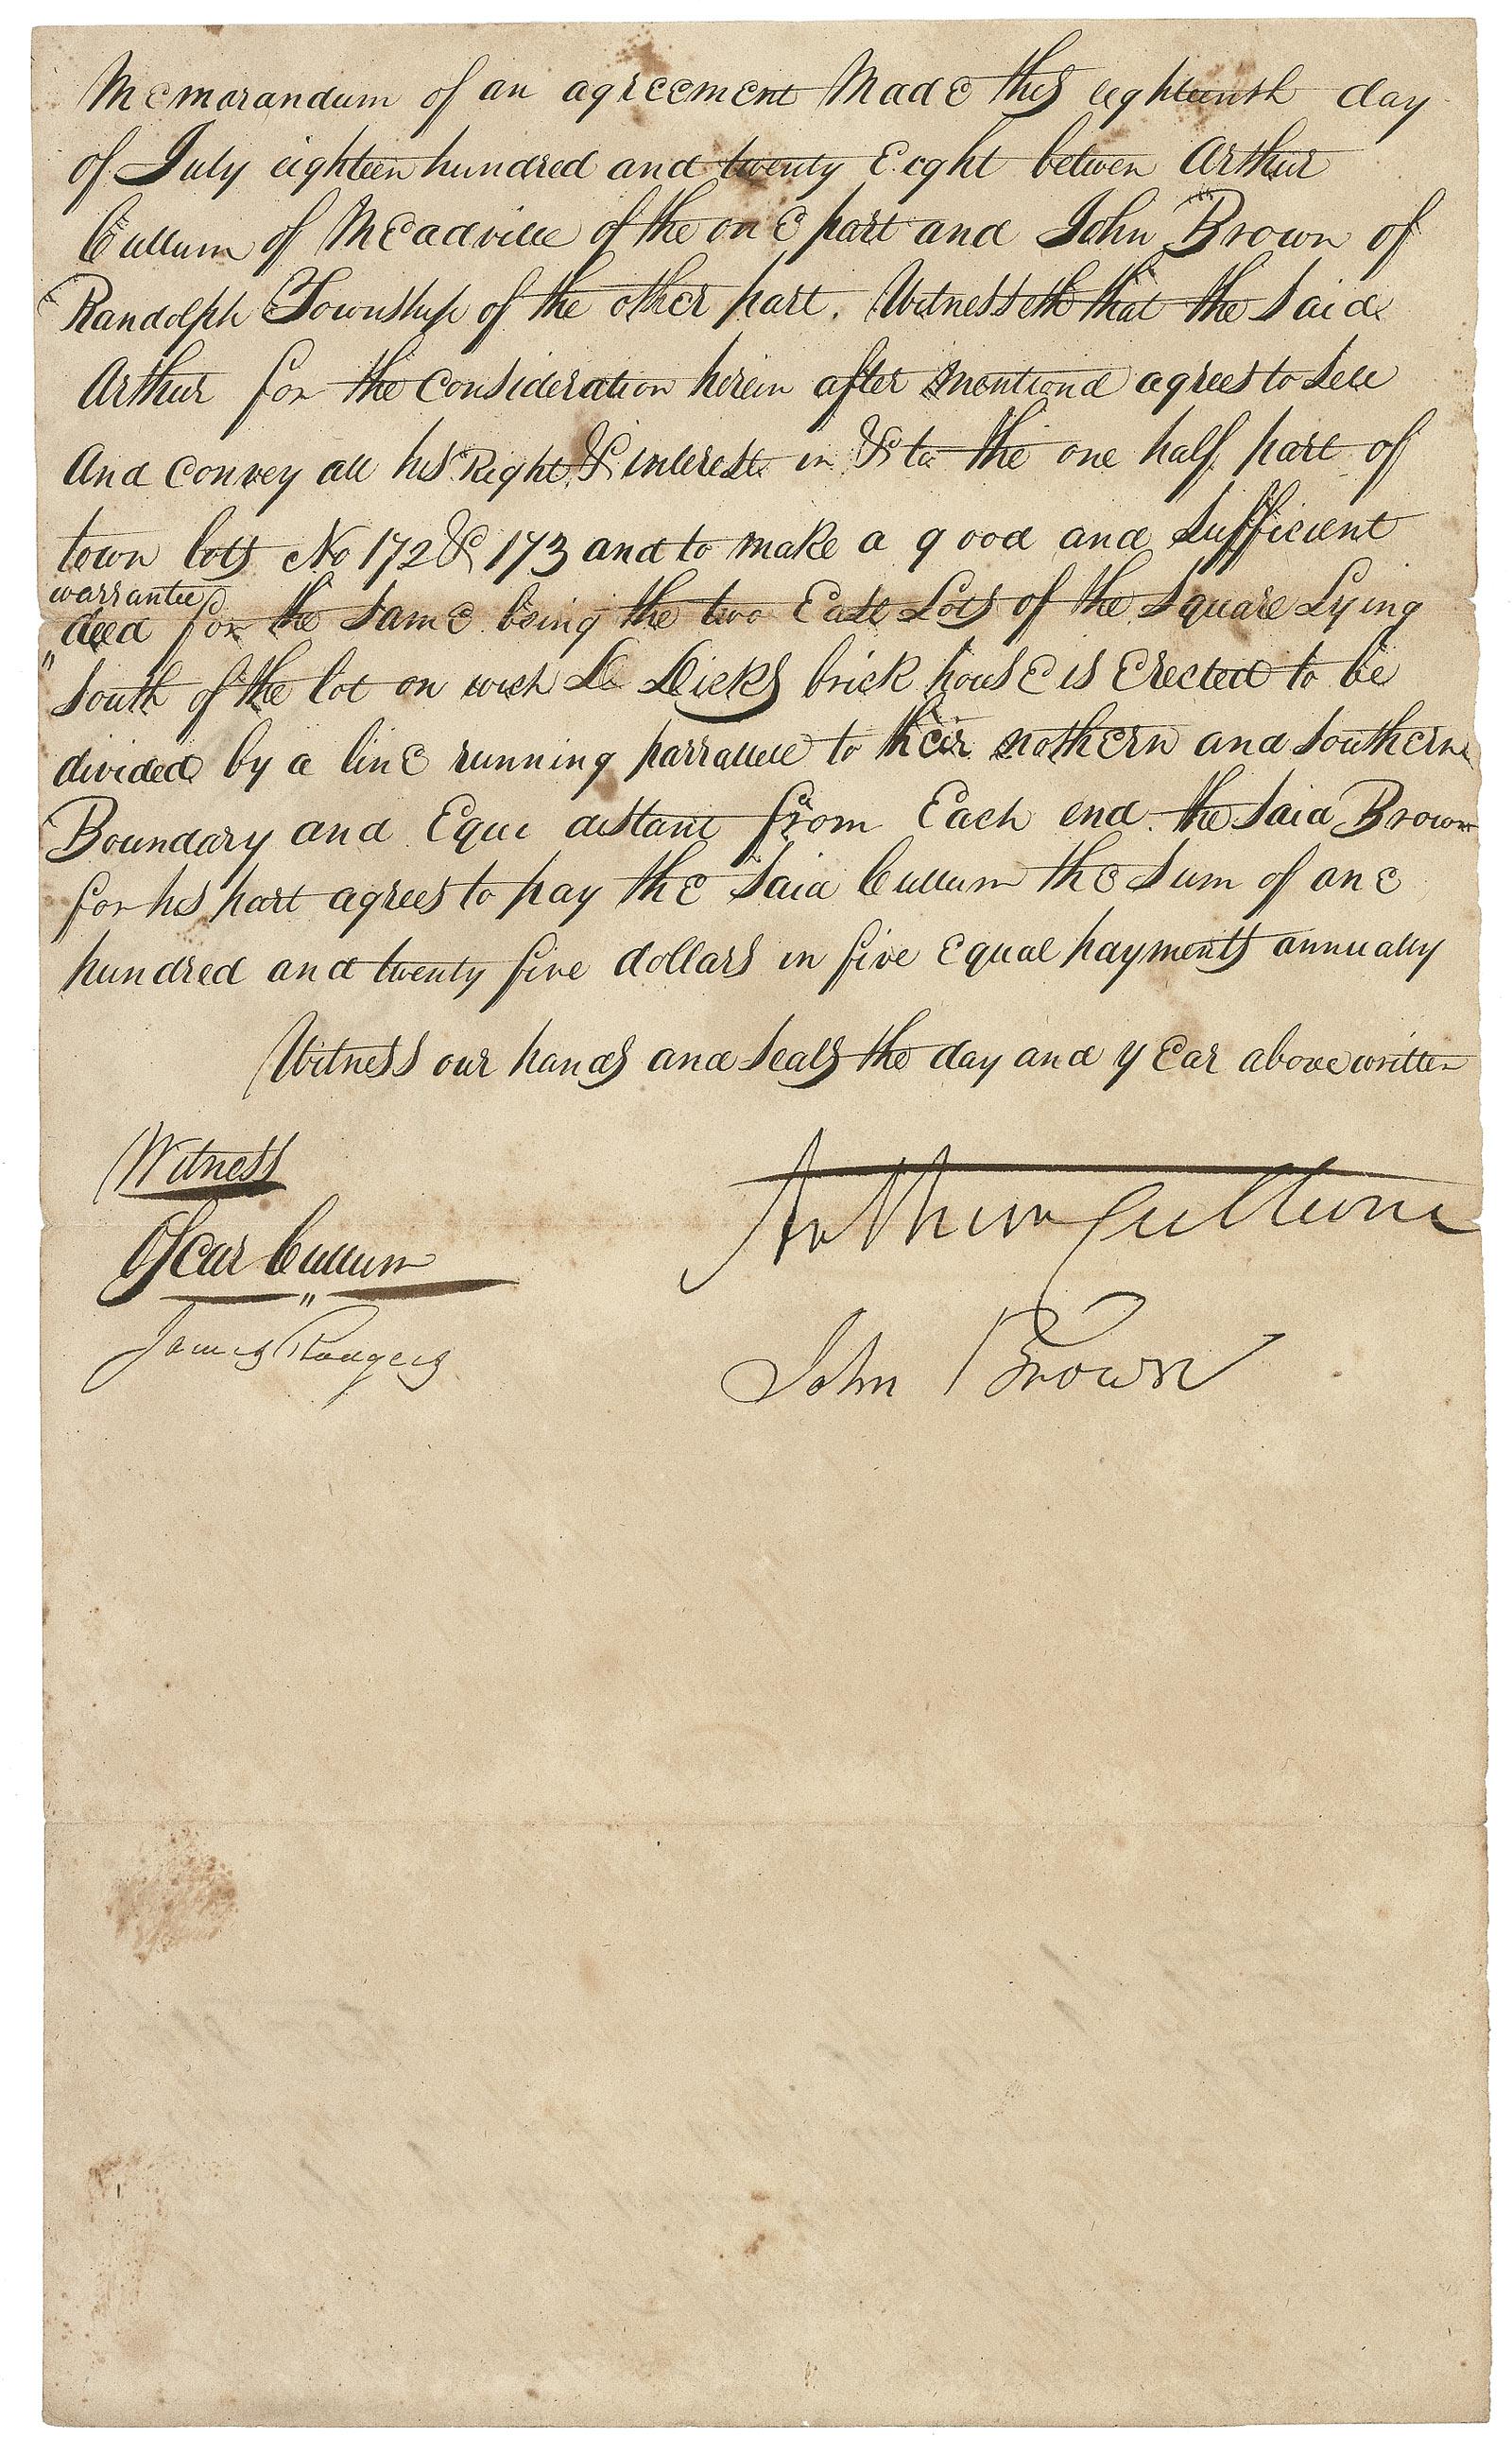 Memorandum of an agreement Made this eighteenth day
of July eighteen hundred and twenty Eeght betwen Arthur
Cullum of Meadville of the one part and John Brown of
Randolph Township of the other part. Witnesseth that the said
Arthur for the Consideration herein after mentiond agrees to sell
And convey all his Right & interest in & to the one half part of
town lots No 172 & 173 and to make a good and sufficient
warrantee
deed for the same being the two East Lots of the Square Lying
South of the lot on wich D Dicks brick house is Erected to be
divided by a line running parrallell to their nothern and southern
Boundary and Equi distant from Each end. the said Brown
for his part agrees to pay the said Cullum the sum of one
hundred and twenty five dollars in five Equal payments annually
Witness our hands and seals the day and year above written
Witness
Arthur Cullum
Oscar Cullum
James Rodgers
John Brown